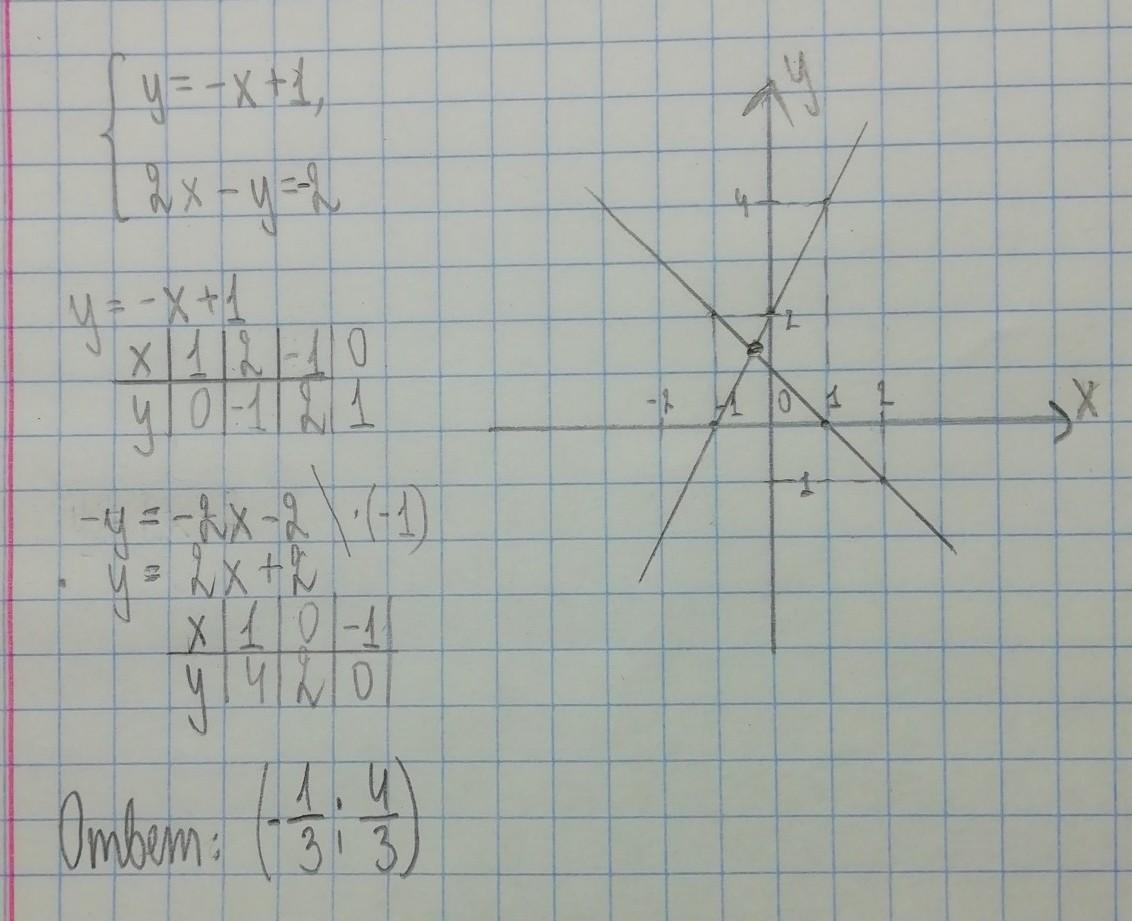 y = -x + 1,
2x - y = -2
y = -x + 1
x | 1 | 2 | -1 | 0
y | 0 | -1 | 2 | 1
-y = -2x - 2 \ ·(-1)
y = 2x + 2
x | 1 | 0 | -1
y | 4 | 2 | 0
Ответ: (-1/3; 4/3)
y
4
2
-2 -1 0 1 2 x
-1